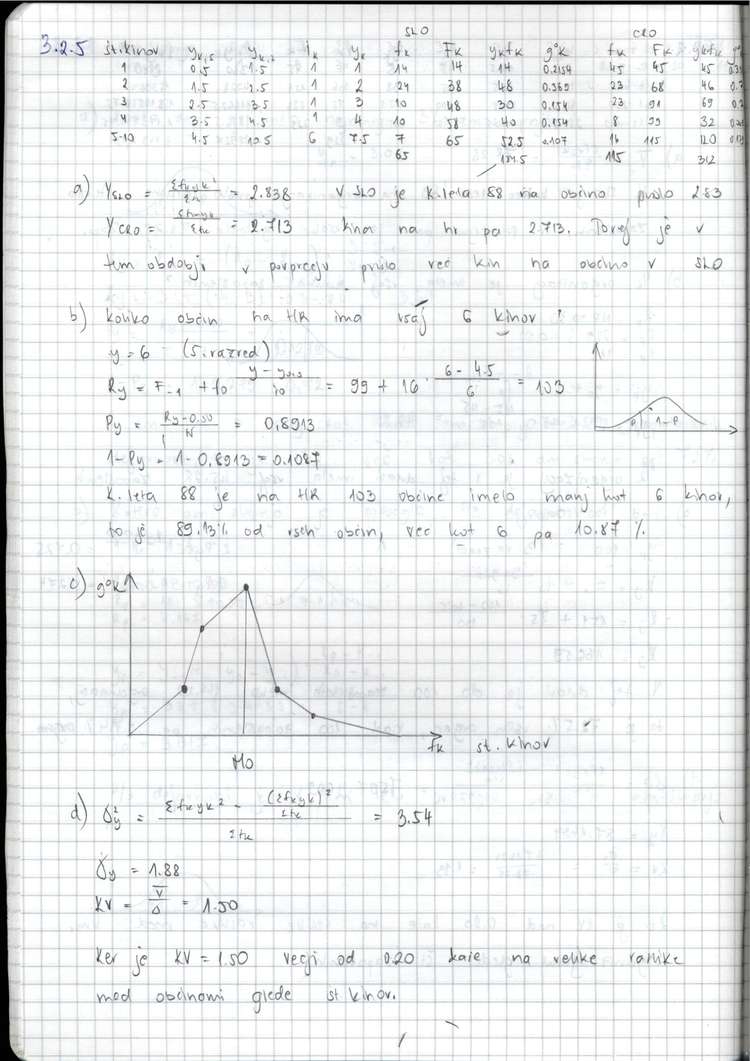 SLO CRO
3.2.5 št.kinov yk,s yk,z ik yk fk Fk ykfk g°k fk Fk ykfk
1 0,5 1.5 1 1 14 14 14 0.2154 45 45 45
2 1.5 2.5 1 2 24 38 48 0.369 23 68 46
3 2.5 3.5 1 3 10 48 30 0.154 23 91 69
4 3.5 4.5 1 4 10 58 40 0.154 8 99 32
5-10 4.5 10.5 6 7.5 7 65 52.5 0.107 16 115 120
65 184.5 115 312
a) YSLO = Σfkyk / Σfk = 2.838 V SLO je k.leta 88 na občino prišlo 2.83
YCRO = Σfkyk / Σfk = 2.713 kina na hr pa 2.713. Torej je v
tem obdobju v povprečju prišlo več kin na občino v SLO
b) koliko občin na HR ima vsaj 6 kinov?
y = 6 (5. razred)
Ry = F-1 + f0 y - y0,s / i0 = 99 + 16 · 6 - 4.5 / 6 = 103
Py = Ry - 0.50 / N = 0,8913
P 1-P
1-Py = 1 - 0,8913 = 0.1087
K. leta 88 je na HR 103 občine imelo manj kot 6 kinov,
to je 89.13% od vseh občin, več kot 6 pa 10.87 %.
c) g°k
fk št. kinov
Mo
d) σy² = Σfkyk² - (Σfkyk)² / Σfk / Σfk = 3.54
σy = 1.88
KV = = 1.50
Ker je KV = 1.50 večji od 0.20 kaže na velike razlike
med občinami glede št kinov.